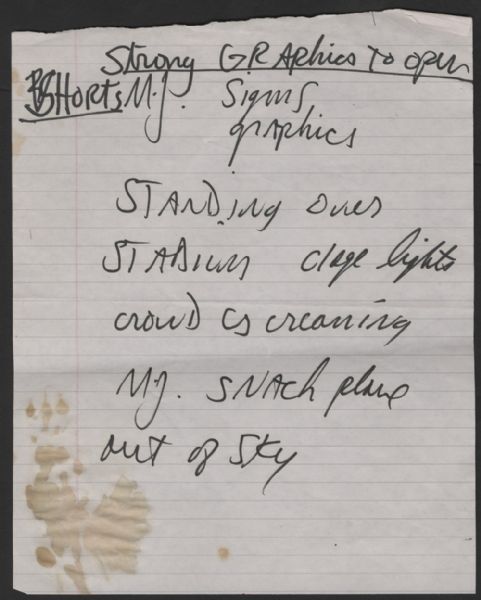 Strong GRAphics To open
SHORTS M.J. Signs
graphics
STANDing over
STADIUM stage lights
crowD is screaming
M.J. SNAtch plane
out of Sky